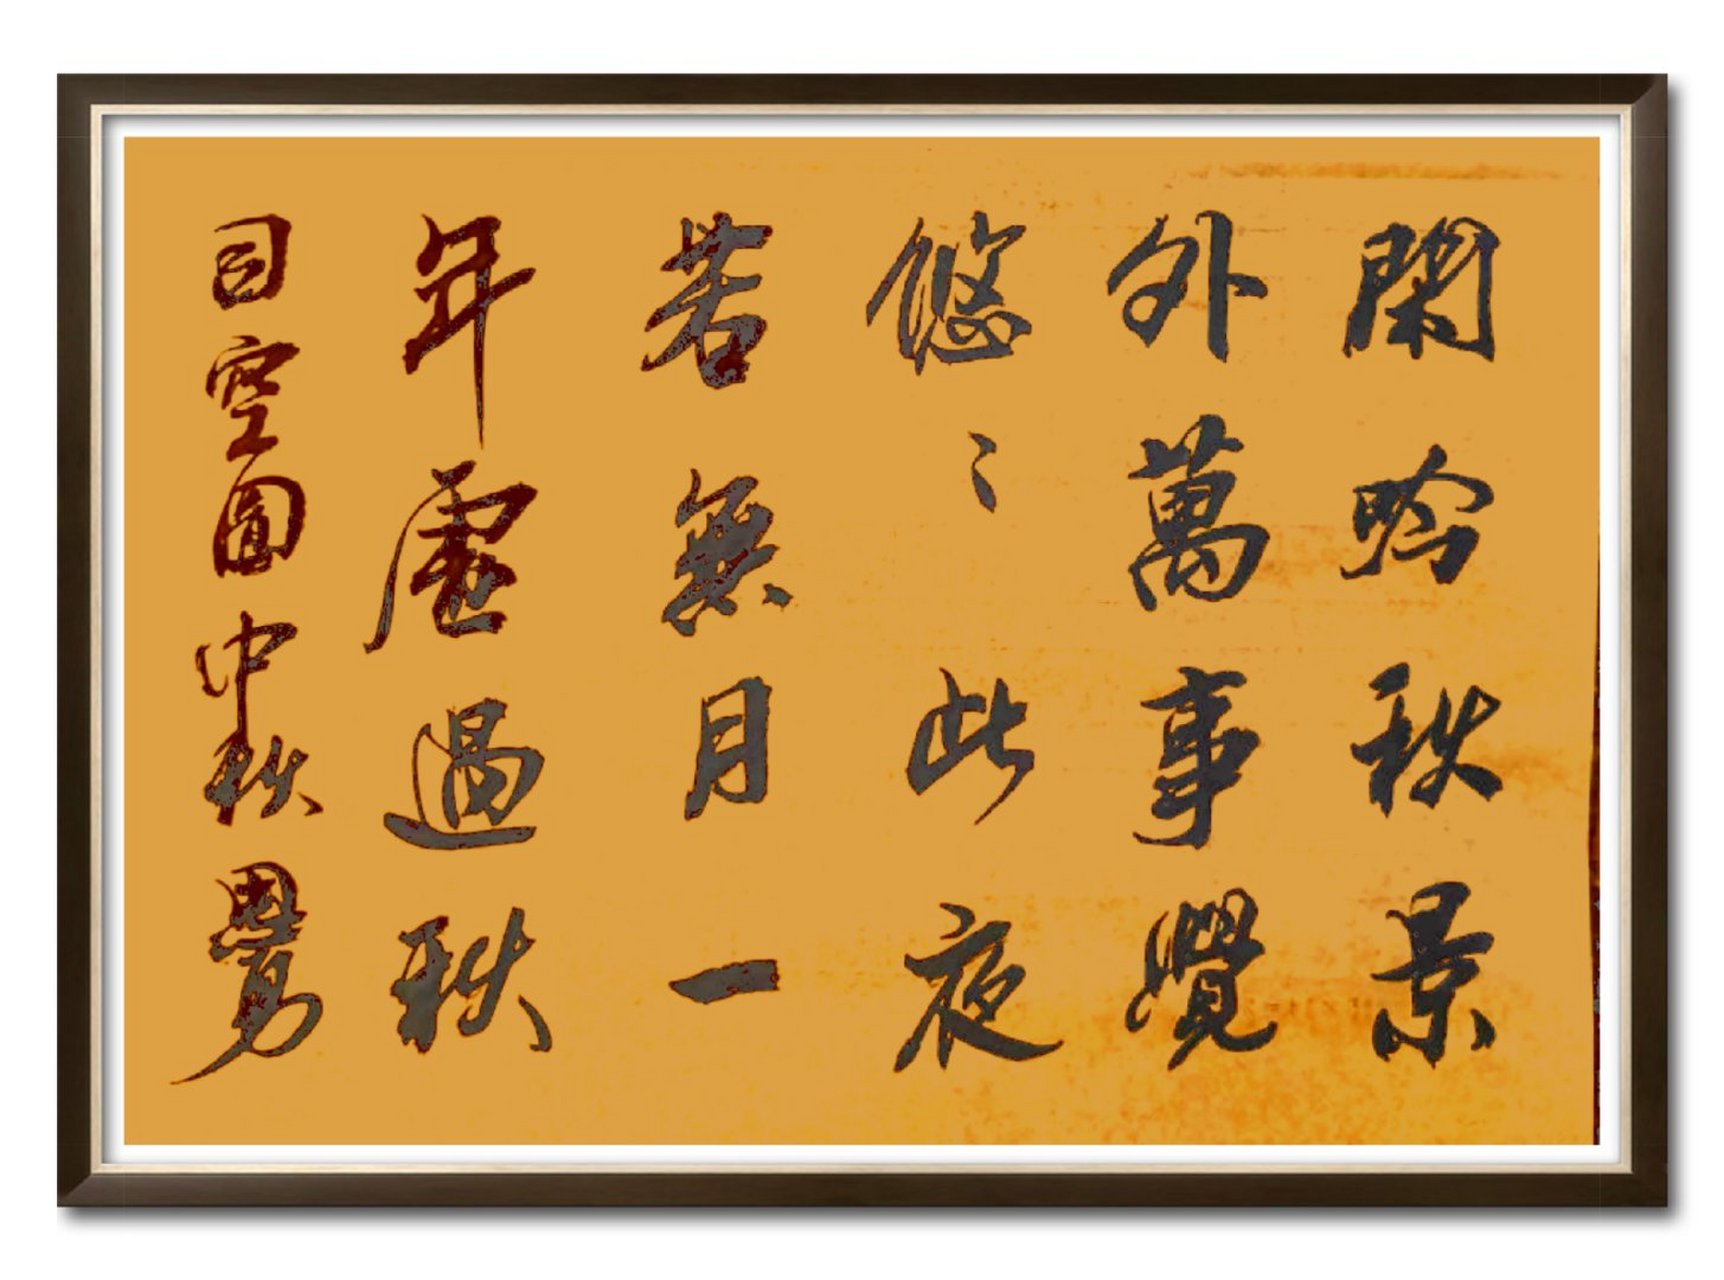 閑吟秋景
外萬事覺
悠〻此夜
若無月一
年虛過秋
司空圖中秋